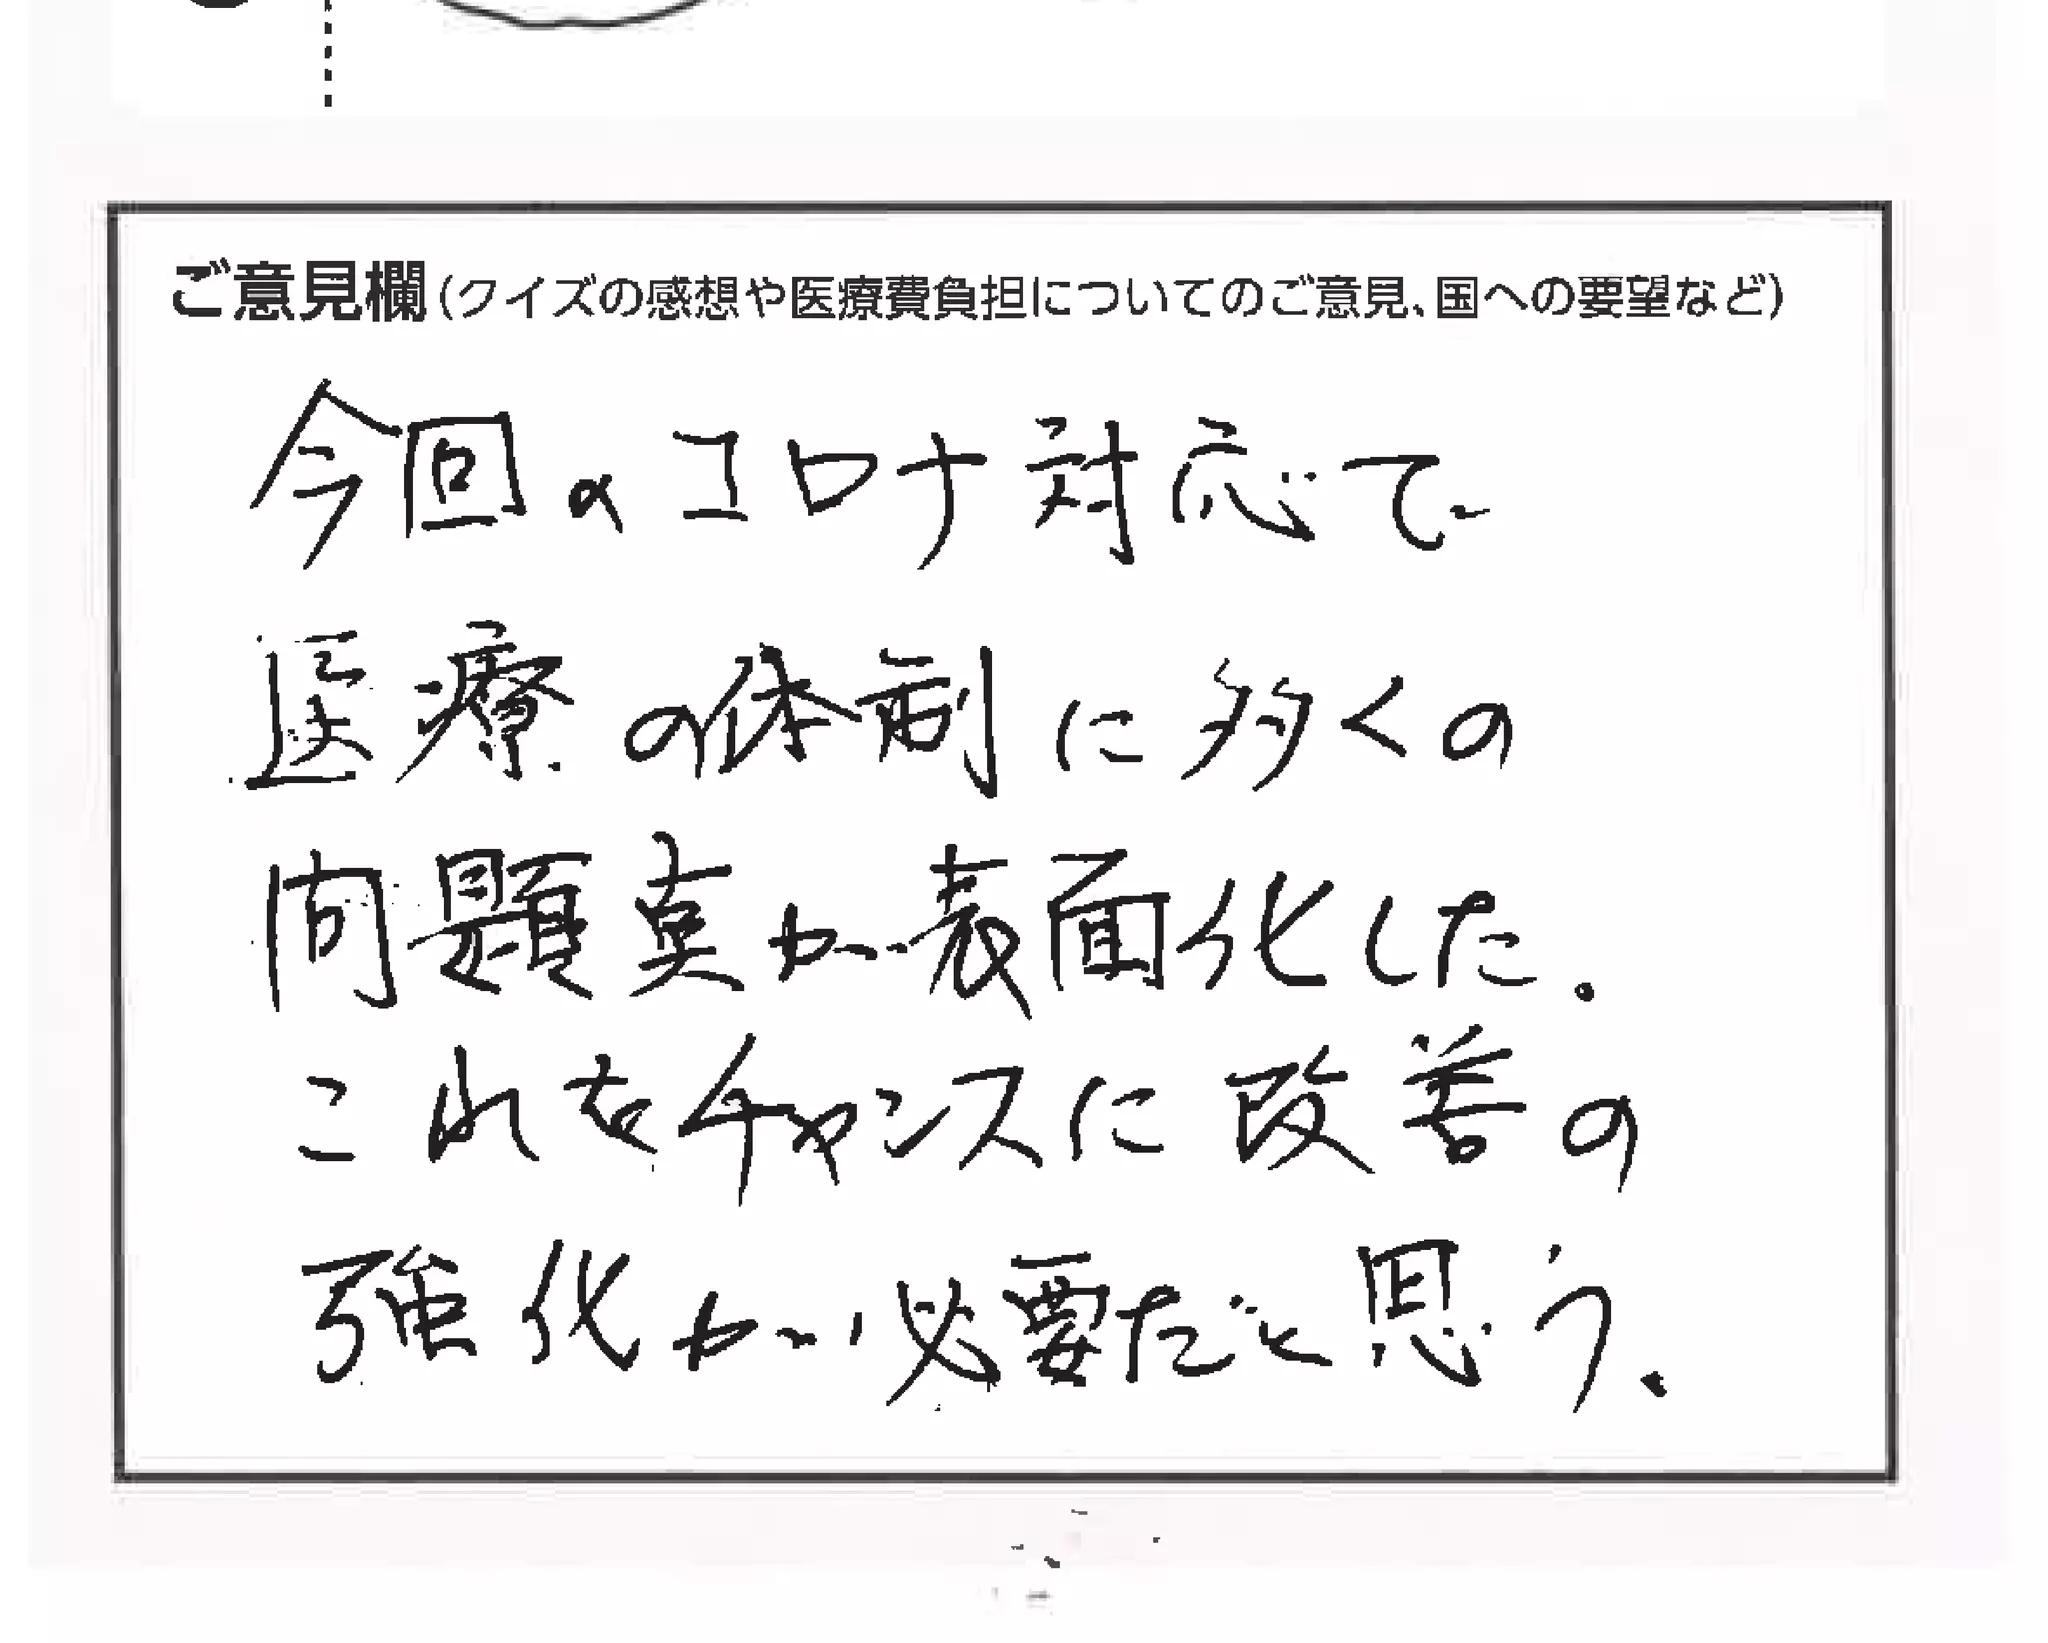 ご意見欄(クイズの感想や医療費負担についてのご意見、国への要望など)
今回のコロナ対応で
医療の体制に多くの
問題点が表面化した。
これをチャンスに改善の
強化が必要だと思う。